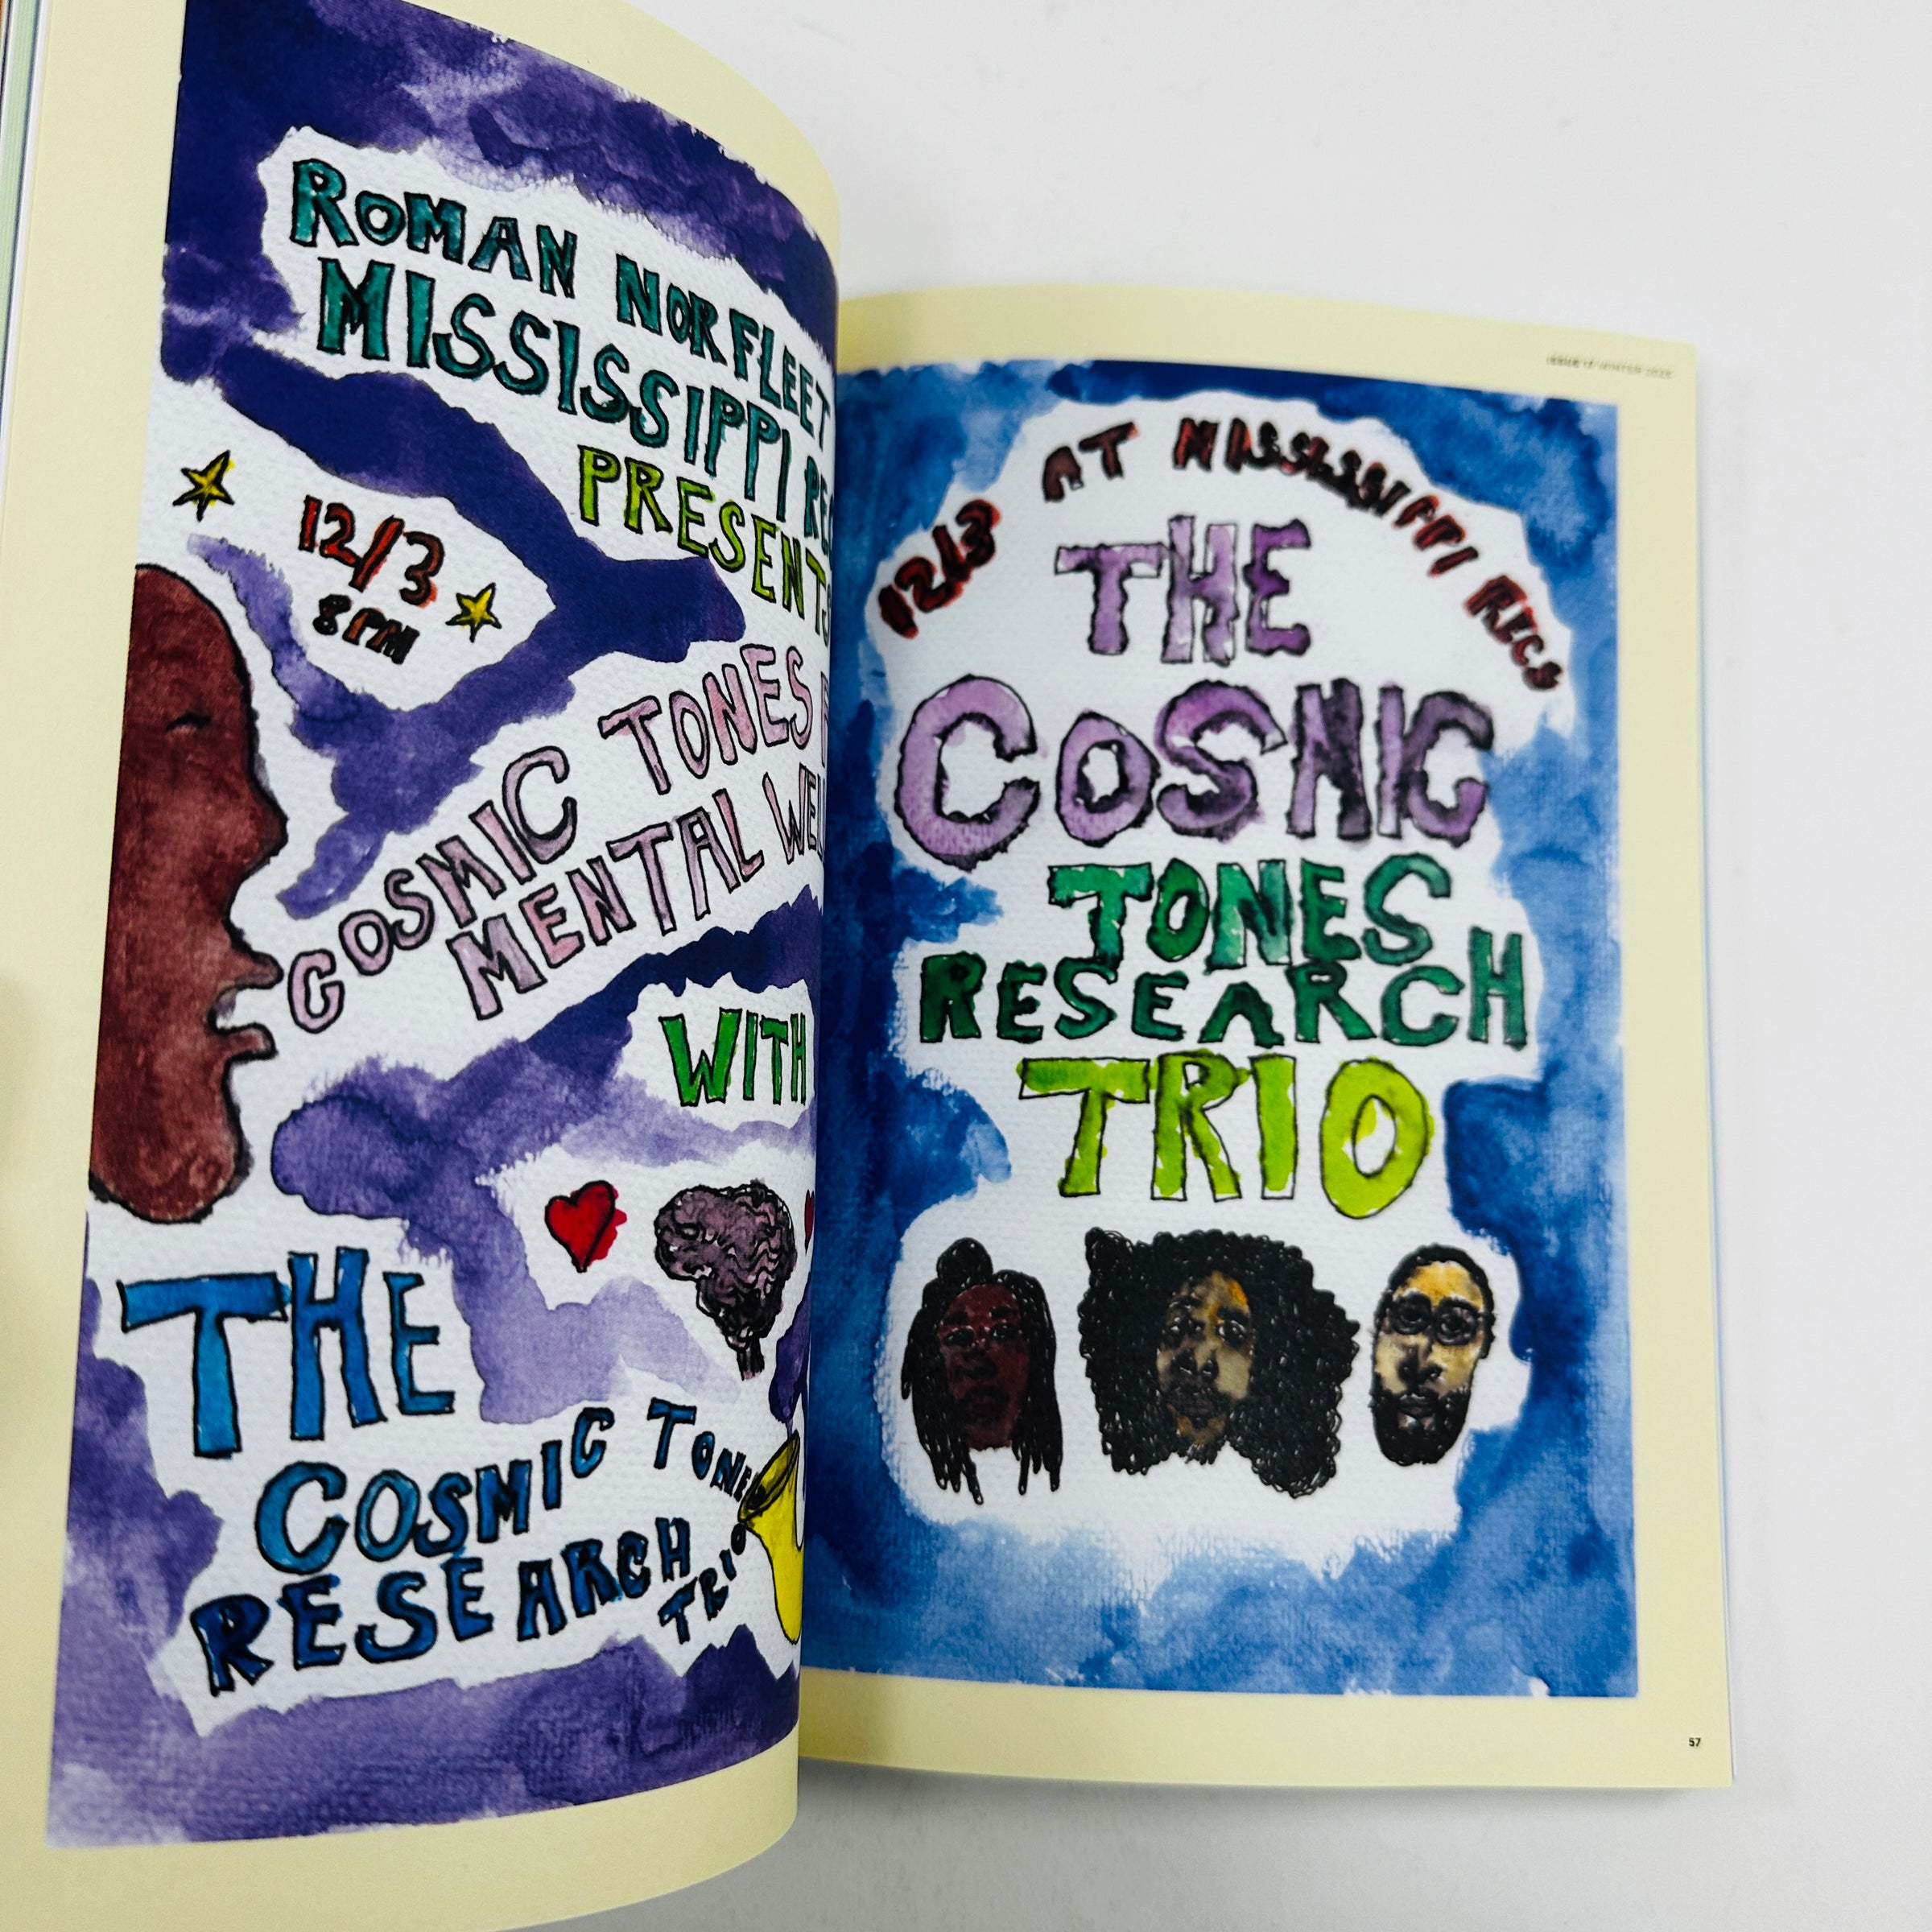 ROMAN NORFLEET
MISSISSIPPI REC
PRESENTS
12/3
8PM
COSMIC TONES
MENTAL WEL
WITH
THE
COSMIC TONE
RESEARCH
TRIO
ISSUE 17 WINTER
12/3 AT MISSISSIPPI RECS
THE
COSMIC
TONES
RESEARCH
TRIO
57